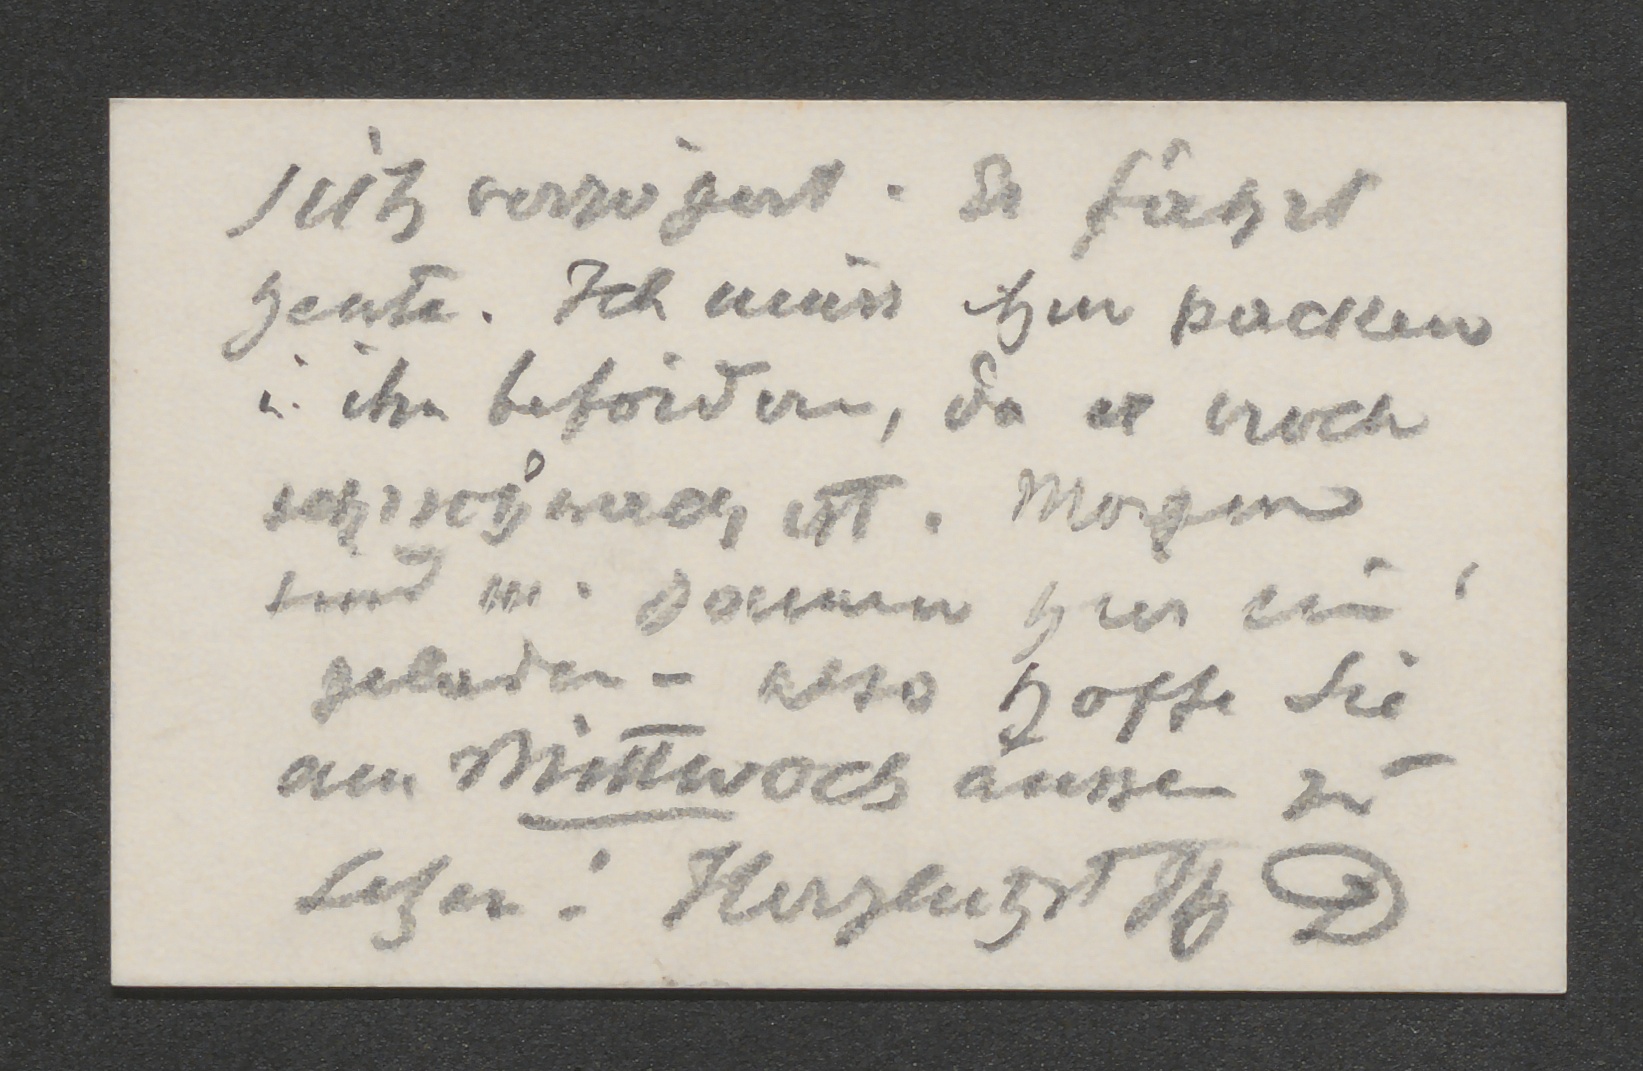 sich verzögert. Er fährt
heute. Ich muss ihm packen
u. ihn befördern, da er noch
sehr schwach ist. Morgen
sind w. Damen hier ein¬
geladen - also hoffe Sie
am Mittwoch aussen zu
sehen! Herzlichst Ihr D